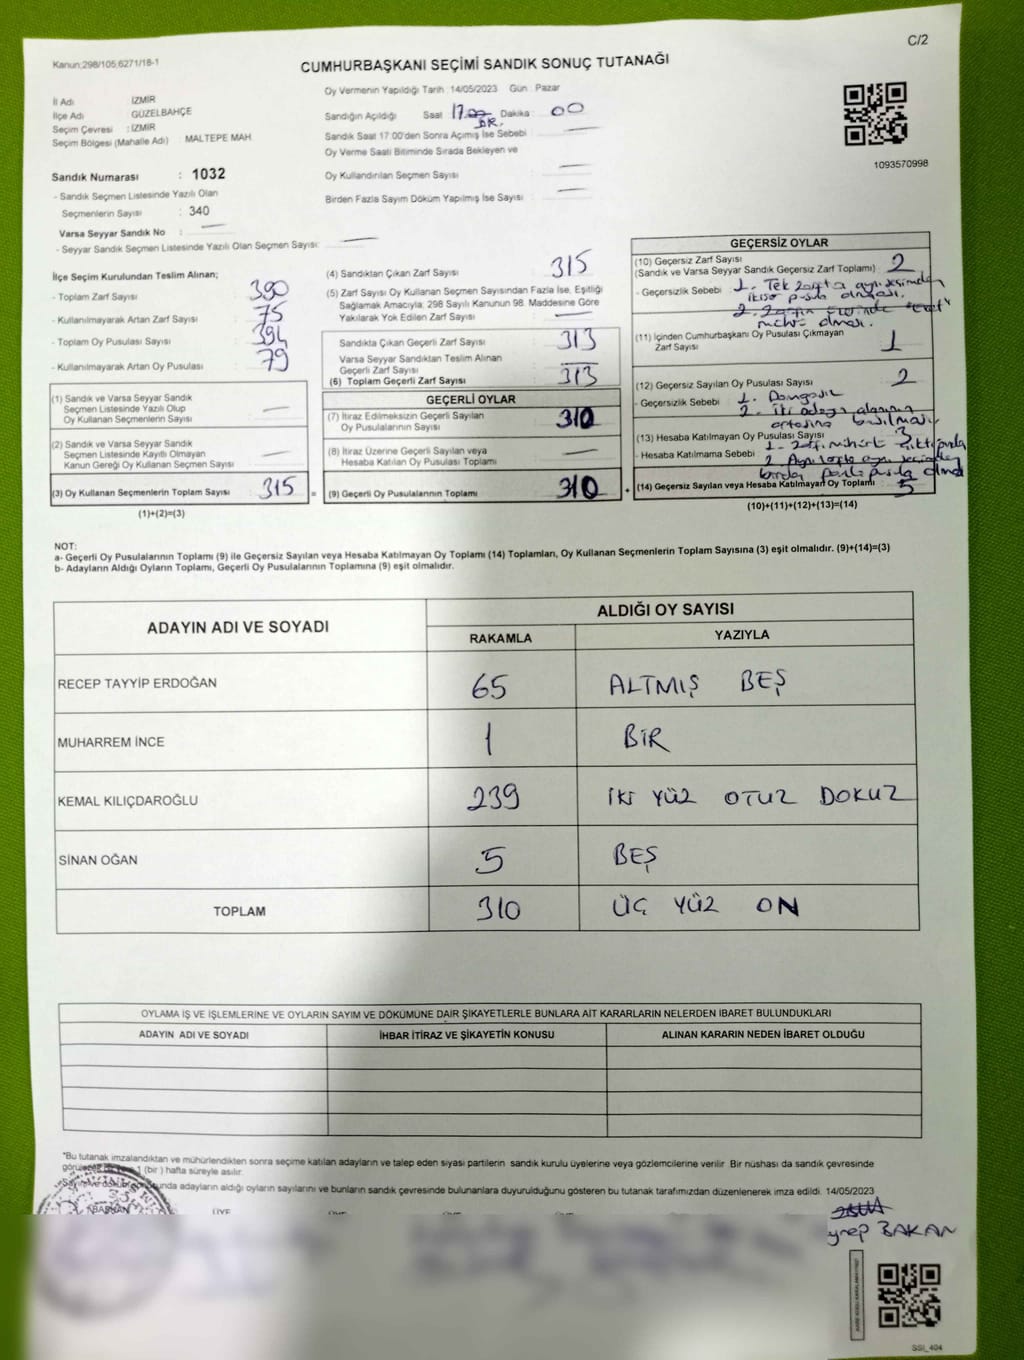 C/2
Kanun:298/105,6271/18-1
CUMHURBAŞKANI SEÇİMİ SANDIK SONUÇ TUTANAĞI
İl Adı İZMİR
İlçe Adı GÜZELBAHÇE
Seçim Çevresi : İZMİR
Seçim Bölgesi (Mahalle Adı) : MALTEPE MAH.
Sandık Numarası : 1032
- Sandık Seçmen Listesinde Yazılı Olan
Seçmenlerin Sayısı : 340
Varsa Seyyar Sandık No :
- Seyyar Sandık Seçmen Listesinde Yazılı Olan Seçmen Sayısı:
Oy Vermenin Yapıldığı Tarih : 14/05/2023 Gün : Pazar
Sandığın Açıldığı Saat 17.00 Dakika : 00
Sandık Saat 17:00'den Sonra Açımış İse Sebebi
Oy Verme Saati Bitiminde Sırada Bekleyen ve
Oy Kullandırılan Seçmen Sayısı
Birden Fazla Sayım Döküm Yapılmış İse Sayısı :
1093570998
İlçe Seçim Kurulundan Teslim Alınan;
- Toplam Zarf Sayısı 390
- Kullanılmayarak Artan Zarf Sayısı : 75
- Toplam Oy Pusulası Sayısı : 394
- Kullanılmayarak Artan Oy Pusulası : 79
(1) Sandık ve Varsa Seyyar Sandık
Seçmen Listesinde Yazılı Olup
Oy Kullanan Seçmenlerin Sayısı
(2) Sandık ve Varsa Seyyar Sandık
Seçmen Listesinde Kayıtlı Olmayan
Kanun Gereği Oy Kullanan Seçmen Sayısı
(3) Oy Kullanan Seçmenlerin Toplam Sayısı 315
(1)+(2)=(3)
(4) Sandıktan Çıkan Zarf Sayısı 315
(5) Zarf Sayısı Oy Kullanan Seçmen Sayısından Fazla İse, Eşitliği
Sağlamak Amacıyla; 298 Sayılı Kanunun 98. Maddesine Göre
Yakılarak Yok Edilen Zarf Sayısı :
Sandıkta Çıkan Geçerli Zarf Sayısı 313
Varsa Seyyar Sandıktan Teslim Alınan
Geçerli Zarf Sayısı
(6) Toplam Geçerli Zarf Sayısı : 313
GEÇERLİ OYLAR
(7) İtiraz Edilmeksizin Geçerli Sayılan
Oy Pusulalarının Sayısı : 310
(8) İtiraz Üzerine Geçerli Sayılan veya
Hesaba Katılan Oy Pusulası Toplamı
= (9) Geçerli Oy Pusulalarının Toplamı : 310 +
GEÇERSİZ OYLAR
(10) Geçersiz Zarf Sayısı
(Sandık ve Varsa Seyyar Sandık Geçersiz Zarf Toplamı) : 2
- Geçersizlik Sebebi : 1. Tek zarfta
olması.
2.
olması.
(11) İçinden Cumhurbaşkanı Oy Pusulası Çıkmayan
Zarf Sayısı 1
(12) Geçersiz Sayılan Oy Pusulası Sayısı : 2
- Geçersizlik Sebebi : 1.
2. iki
ortasına
(13) Hesaba Katılmayan Oy Pusulası Sayısı
- Hesaba Katılmama Sebebi : 1.
2.
(14) Geçersiz Sayılan veya Hesaba Katılmayan Oy Toplamı : 5
(10)+(11)+(12)+(13)=(14)
NOT:
a- Geçerli Oy Pusulalarının Toplamı (9) ile Geçersiz Sayılan veya Hesaba Katılmayan Oy Toplamı (14) Toplamları, Oy Kullanan Seçmenlerin Toplam Sayısına (3) eşit olmalıdır. (9)+(14)=(3)
b- Adayların Aldığı Oyların Toplamı, Geçerli Oy Pusulalarının Toplamına (9) eşit olmalıdır.
ADAYIN ADI VE SOYADI ALDIĞI OY SAYISI
RAKAMLA YAZIYLA
RECEP TAYYİP ERDOĞAN 65 ALTMIŞ BEŞ
MUHARREM İNCE 1 BİR
KEMAL KILIÇDAROĞLU 239 İKİ YÜZ OTUZ DOKUZ
SİNAN OĞAN 5 BEŞ
TOPLAM 310 ÜÇ YÜZ ON
OYLAMA İŞ VE İŞLEMLERİNE VE OYLARIN SAYIM VE DÖKÜMÜNE DAİR ŞİKAYETLERLE BUNLARA AİT KARARLARIN NELERDEN İBARET BULUNDUKLARI
ADAYIN ADI VE SOYADI İHBAR İTİRAZ VE ŞİKAYETİN KONUSU ALINAN KARARIN NEDEN İBARET OLDUĞU
"Bu tutanak imzalandıktan ve mühürlendikten sonra seçime katılan adayların ve talep eden siyasi partilerin sandık kurulu üyelerine veya gözlemcilerine verilir Bir nüshası da sandık çevresinde
1 (bir) hafta süreyle asılır.
adayların aldığı oyların sayılarını ve bunların sandık çevresinde bulunanlara duyurulduğunu gösteren bu tutanak tarafımızdan düzenlenerek imza edildi. 14/05/2023
BAŞKAN ÜYE
BAKAN
SSI_404